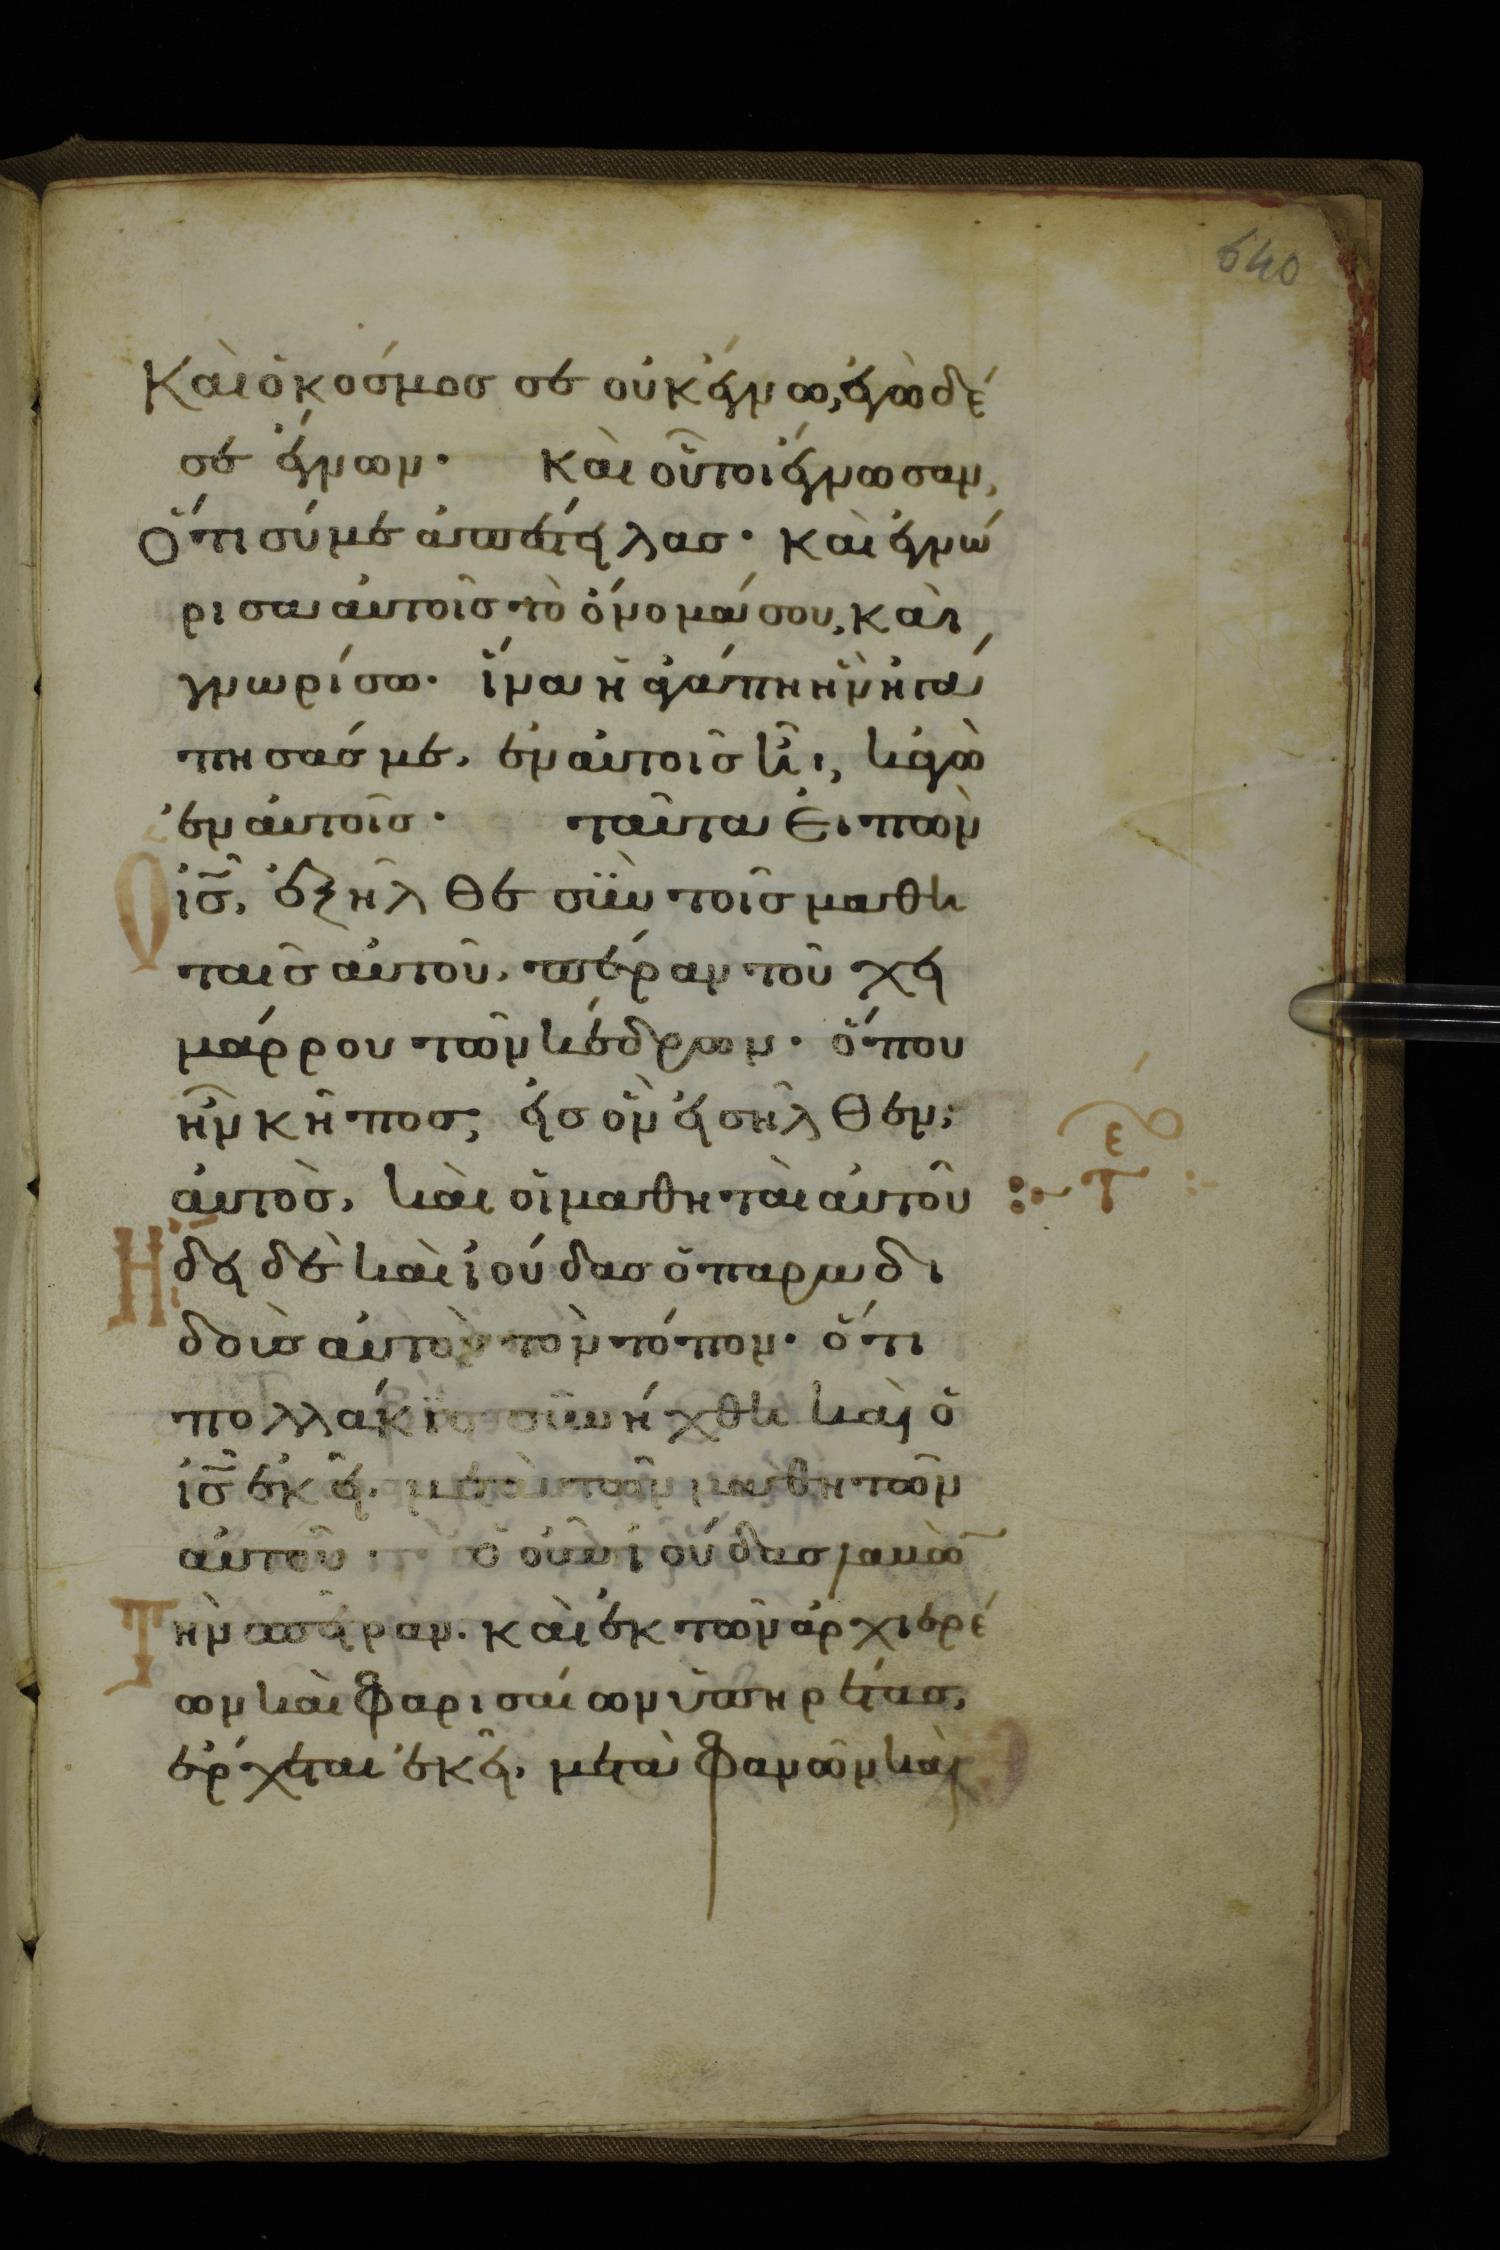 640
Καὶ ὁ κόσμος σε οὐκ ἔγνω, ἐγὼ δέ
σε ἔγνων· καὶ οὗτοι ἔγνωσαν,
Ὅτι σύ με ἀπέστειλας· καὶ ἐγνώ
ρισα αὐτοῖς τὸ ὄνομά σου, καὶ
γνωρίσω· ἵνα ἡ ἀγάπη ἣν ἠγά
πησάς με, ἐν αὐτοῖς ᾖ, κἀγὼ
ἐν αὐτοῖς· ταῦτα εἰπὼν
Ὁ ις, ἐξῆλθε σὺν τοῖς μαθη
ταῖς αὐτοῦ, πέραν τοῦ χει
μάρρου τῶν κέδρων· ὅπου
ἦν κῆπος, εἰς ὃν εἰσῆλθεν,
αὐτὸς, καὶ οἱ μαθηταὶ αὐτοῦ
Ἤδει δὲ καὶ ἰούδας ὁ παραδι
δοὺς αὐτὸν τὸν τόπον· ὅτι
πολλάκις συνήχθη καὶ ὁ
ις ἐκεῖ, μετὰ τῶν μαθητῶν
αὐτοῦ· ὁ οὖν ἰούδας λαβὼν
Τὴν σπεῖραν, καὶ ἐκ τῶν ἀρχιερέ
ων καὶ φαρισαίων ὑπηρέτας,
ἔρχεται ἐκεῖ, μετὰ φανῶν καὶ